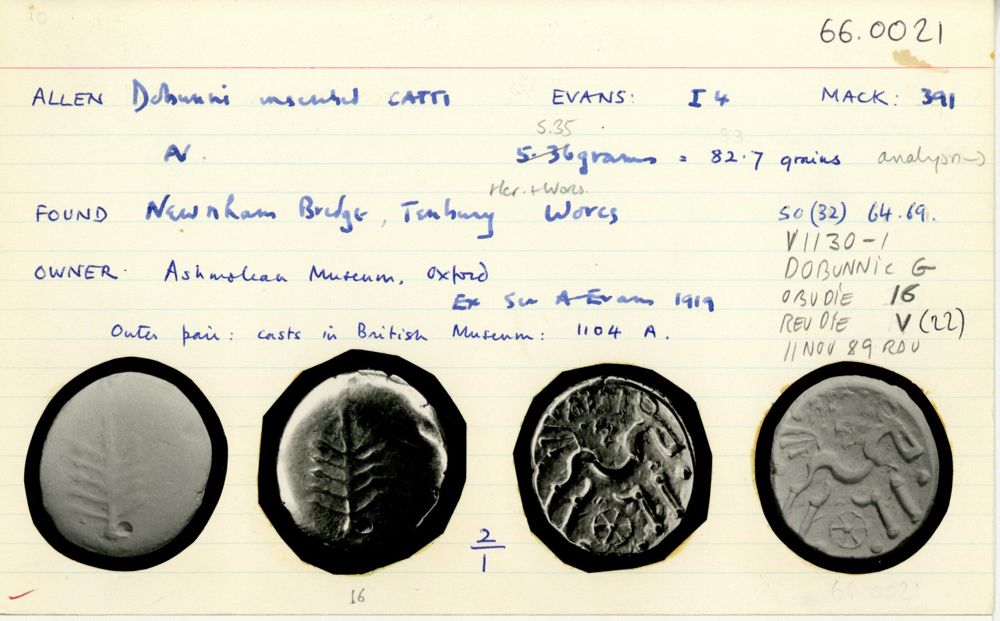 66.0021
ALLEN Dobunni inscribed CATTI EVANS: I 4 MACK: 391
5.35
N 5.36 grams = 82.7 grains analysis→
Her. + Worcs.
FOUND Newnham Bridge, Tenbury Worcs SO (32) 64.69.
V1130-1
OWNER. Ashmolean Museum, Oxford DOBUNNIC G
Ex Sir A Evans 1919 OBV DIE 16
Outer pair: casts in British Museum: 1104 A. REV DIE V (22)
11 NOV 89 RDV
2/1
16
66.0021